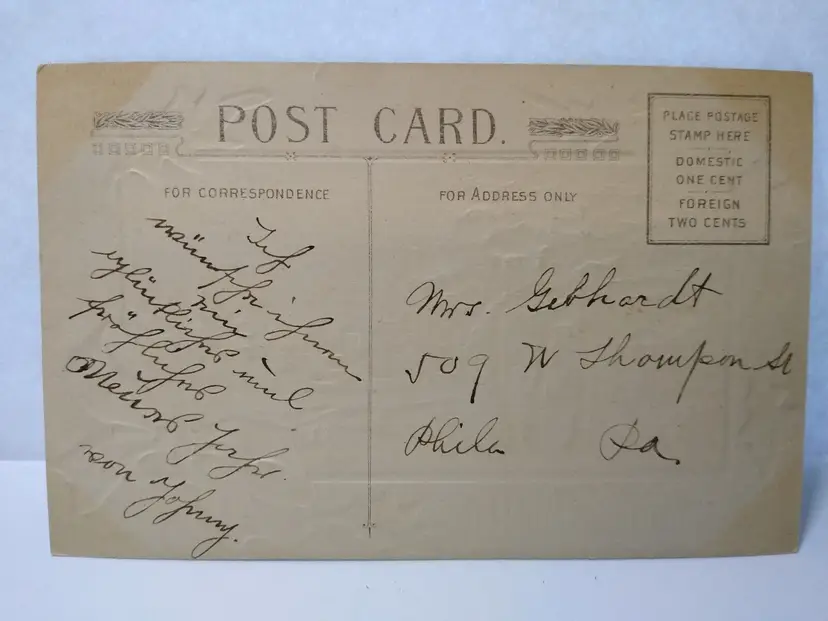 POST CARD.
PLACE POSTAGE
STAMP HERE
DOMESTIC
ONE CENT
FOREIGN
TWO CENTS
FOR CORRESPONDENCE
FOR ADDRESS ONLY
Ich
wünsche ihnen
ein
glückliches und
fröhliches
Neues Jahr.
von Johnny.
Mrs. Gebhardt
509 W Thompson St
Phila Pa.